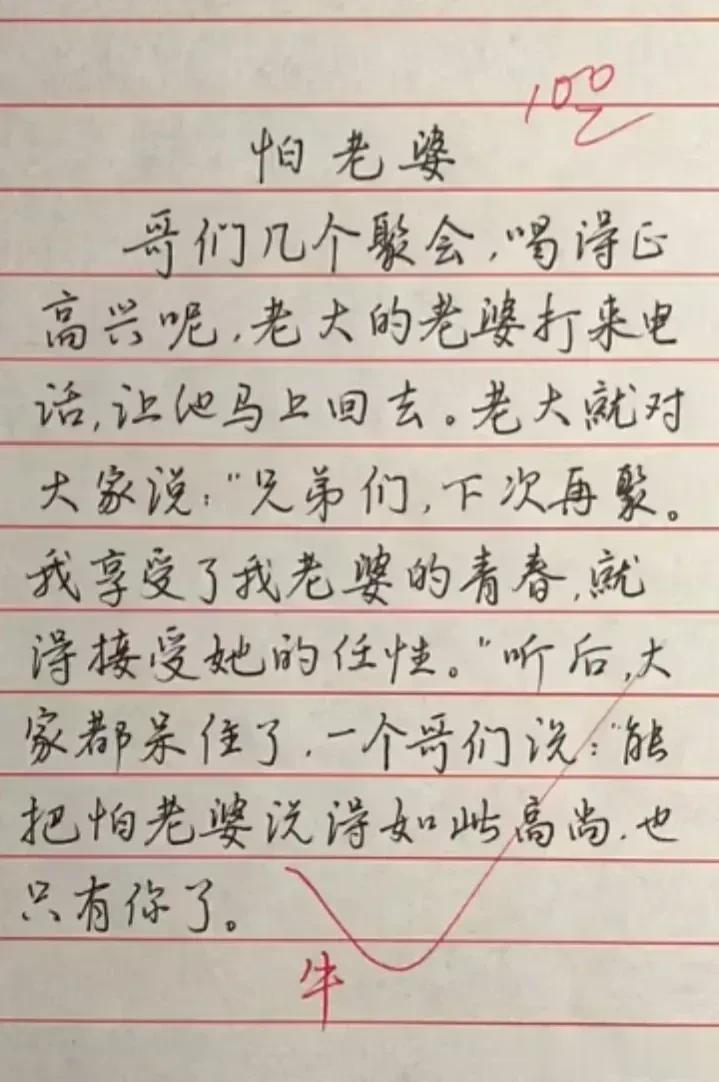 100
怕老婆
哥们几个聚会,喝得正
高兴呢,老大的老婆打来电
话,让他马上回去。老大就对
大家说:"兄弟们,下次再聚。
我享受了我老婆的青春,就
得接受她的任性。"听后,大
家都呆住了,一个哥们说:"能
把怕老婆说得如此高尚,也
只有你了。
牛